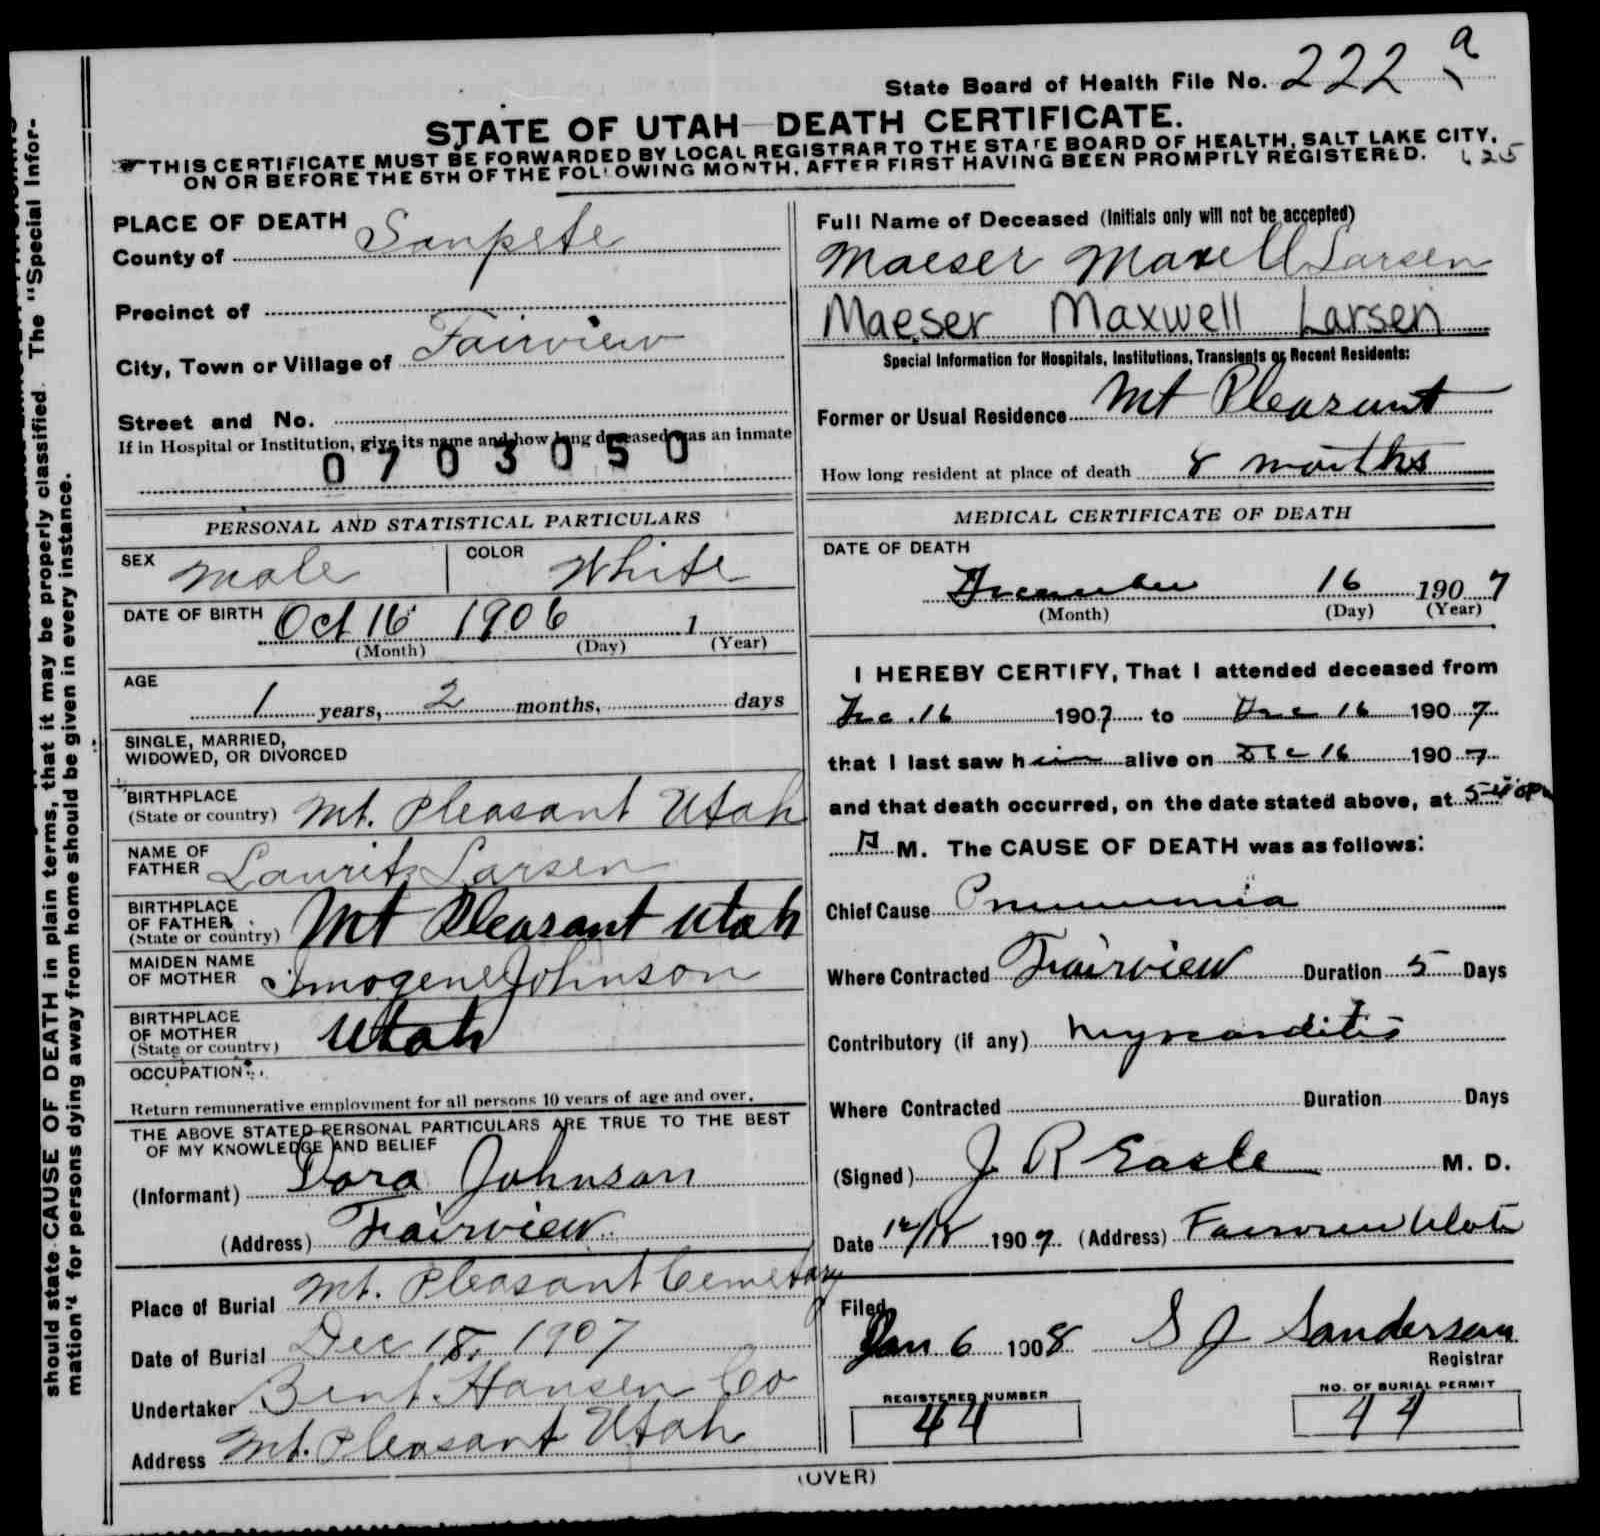 State Board of Health File No. 222 a
STATE OF UTAH DEATH CERTIFICATE.
THIS CERTIFICATE MUST BE FORWARDED BY LOCAL REGISTRAR TO THE STATE BOARD OF HEALTH, SALT LAKE CITY,
ON OR BEFORE THE 5TH OF THE FOLLOWING MONTH, AFTER FIRST HAVING BEEN PROMPTLY REGISTERED.
should state CAUSE OF DEATH in plain terms, that it may be properly classified. The "Special Infor-
mation" for persons dying away from home should be given in every instance.
PLACE OF DEATH
County of Sanpete
Precinct of
City, Town or Village of Fairview
Street and No.
If in Hospital or Institution, give its name and how long deceased was an inmate
0703050
PERSONAL AND STATISTICAL PARTICULARS
SEX Male COLOR White
DATE OF BIRTH Oct 16 1906 1
(Month) (Day) (Year)
AGE
1 years, 2 months, days
SINGLE, MARRIED,
WIDOWED, OR DIVORCED
BIRTHPLACE
(State or country) Mt. Pleasant Utah
NAME OF
FATHER Laurits Larsen
BIRTHPLACE
OF FATHER
(State or country) Mt Pleasant Utah
MAIDEN NAME
OF MOTHER Imogene Johnson
BIRTHPLACE
OF MOTHER
(State or country) Utah
OCCUPATION
Return remunerative employment for all persons 10 years of age and over.
THE ABOVE STATED PERSONAL PARTICULARS ARE TRUE TO THE BEST
OF MY KNOWLEDGE AND BELIEF
(Informant) Dora Johnson
(Address) Fairview
Place of Burial Mt. Pleasant Cemetary
Date of Burial Dec 18, 1907
Undertaker Bent Hansen Co
Address Mt. Pleasant Utah
Full Name of Deceased (Initials only will not be accepted)
Maeser Maxell Larsen
Maeser Maxwell Larsen
Special Information for Hospitals, Institutions, Transients or Recent Residents:
Former or Usual Residence Mt Pleasant
How long resident at place of death 8 months
MEDICAL CERTIFICATE OF DEATH
DATE OF DEATH
December 16 1907
(Month) (Day) (Year)
I HEREBY CERTIFY, That I attended deceased from
Dec. 16 1907 to Dec 16 1907
that I last saw him alive on Dec 16 1907
and that death occurred, on the date stated above, at
M. The CAUSE OF DEATH was as follows:
Chief Cause Pneumonia
Where Contracted Fairview Duration 5 Days
Contributory (if any) Myocarditis
Where Contracted Duration Days
(Signed) J R M. D.
Date 12/18 1907 (Address) Fairview Utah
Filed
Jan 6 1908 S J Sanderson
Registrar
REGISTERED NUMBER
44
NO. OF BURIAL PERMIT
44
(OVER)